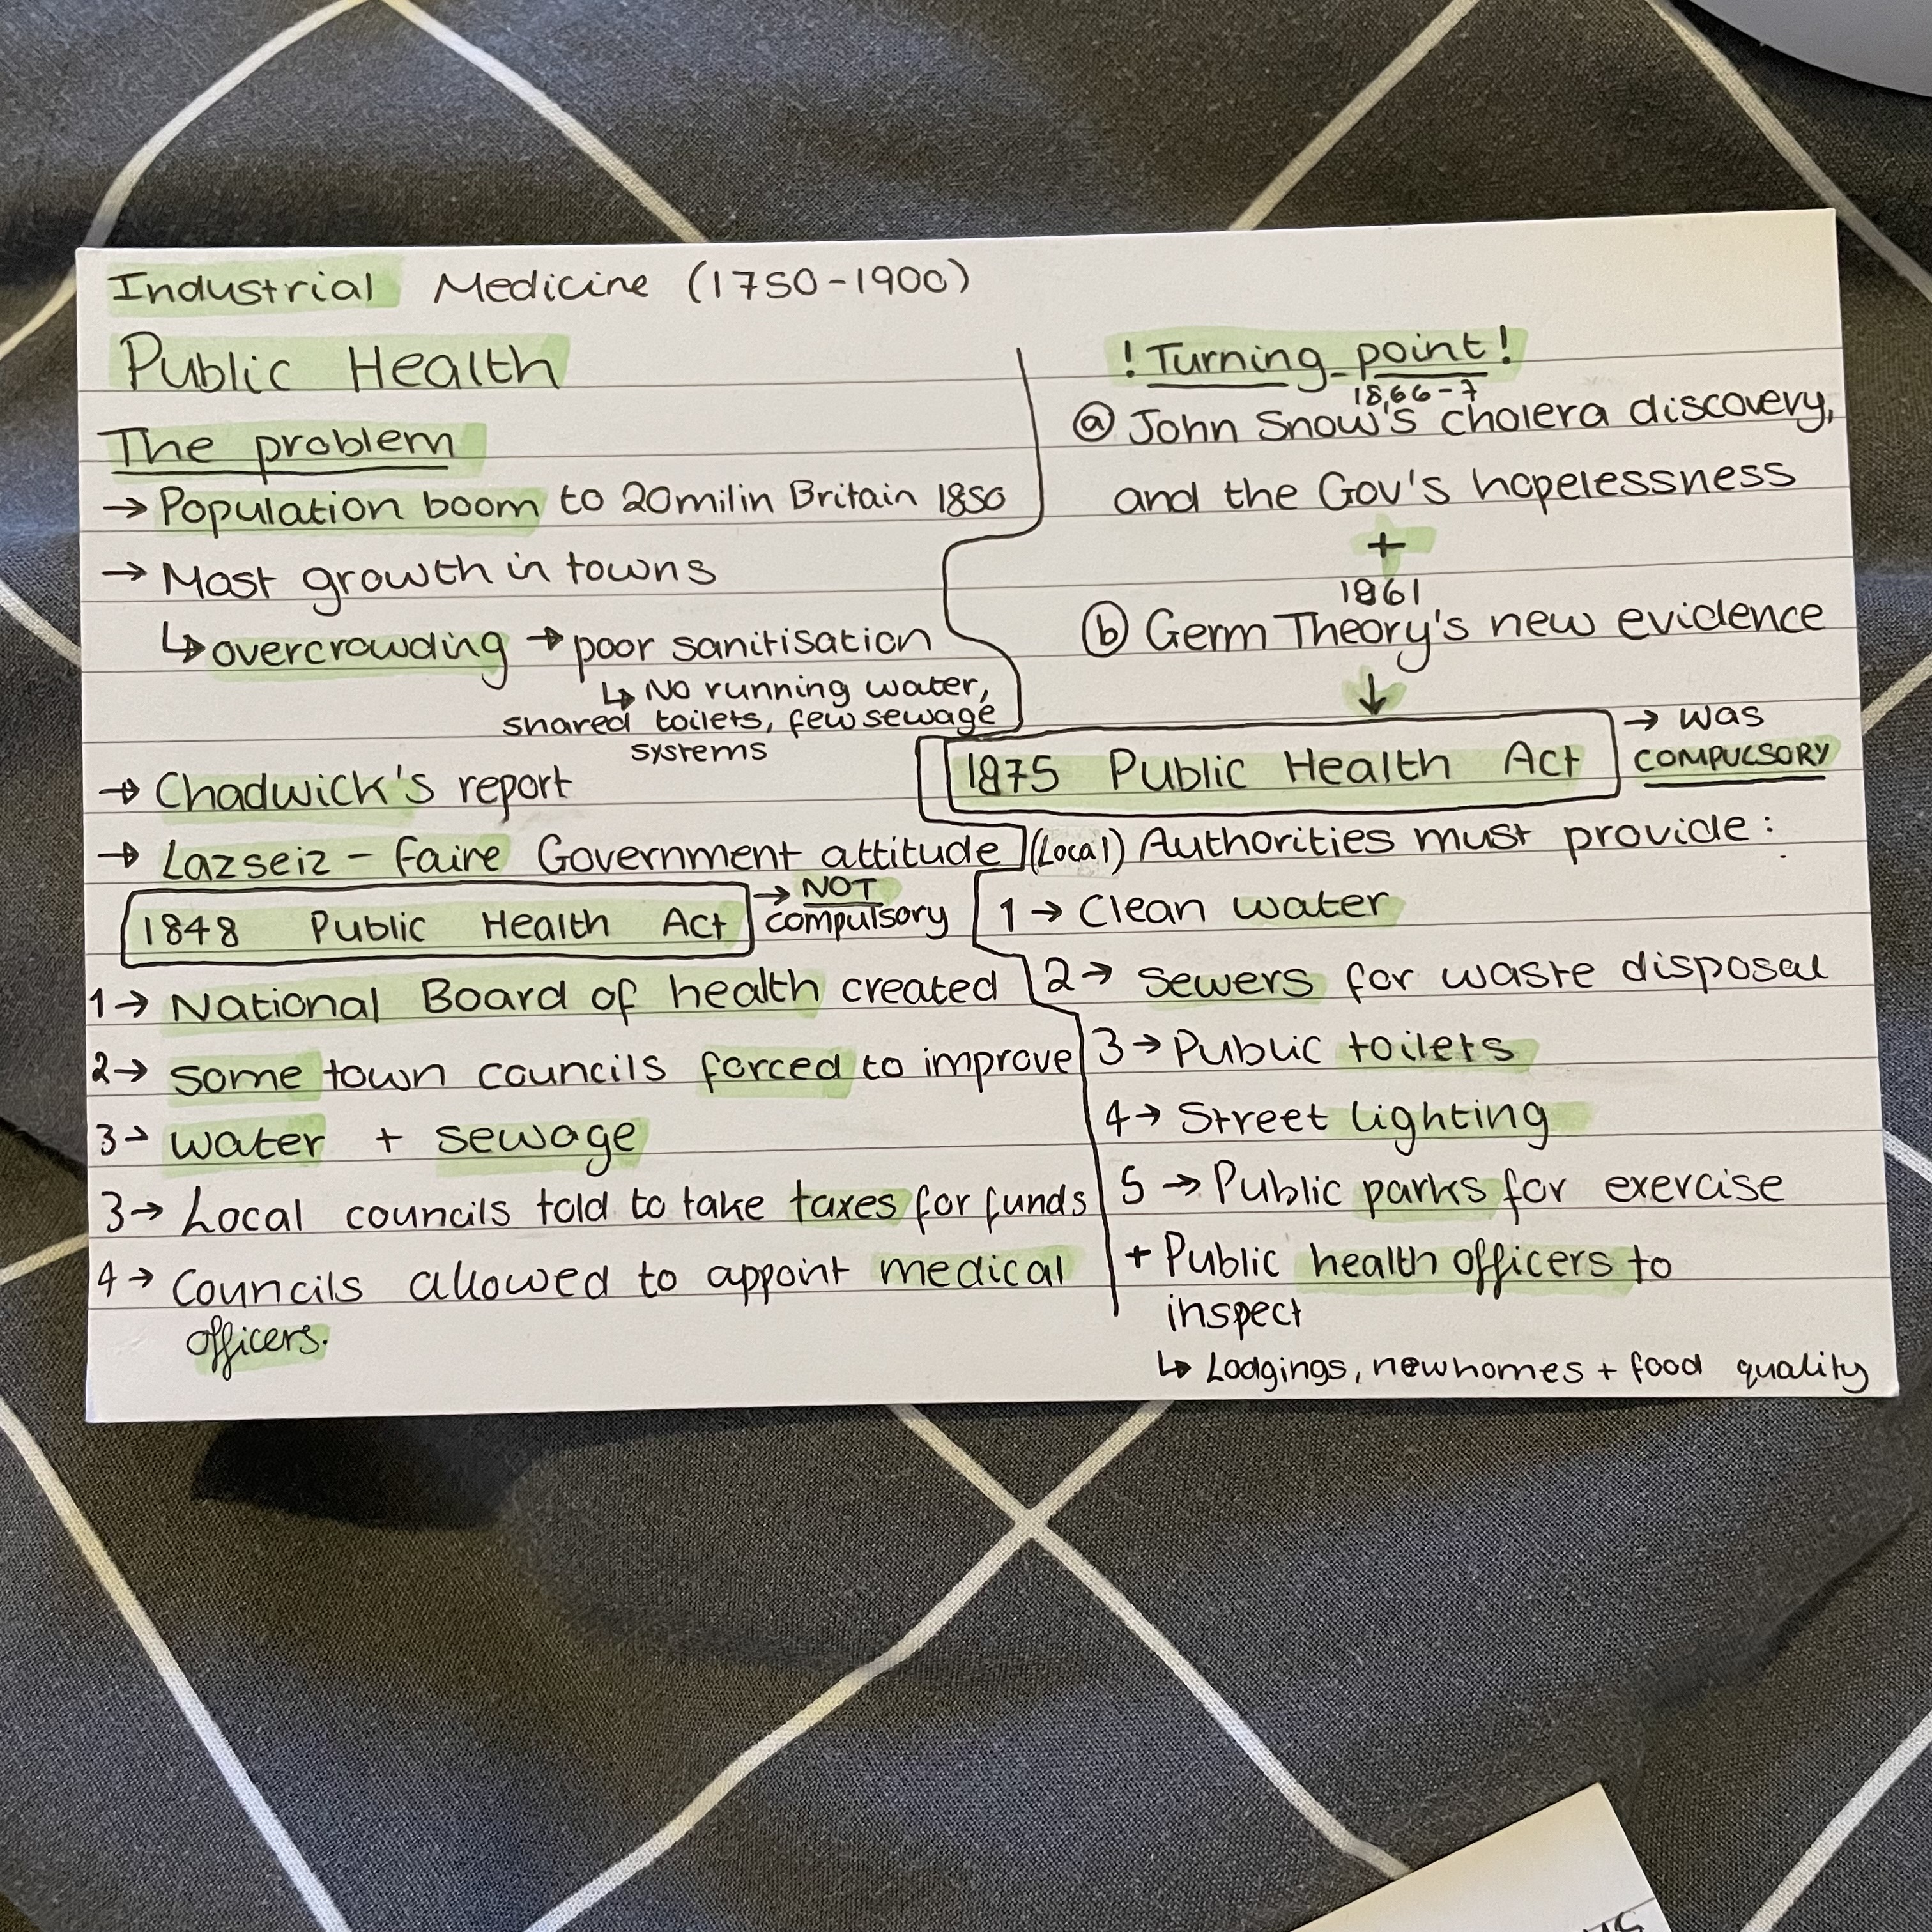 Industrial Medicine (1750-1900)
Public Health
The problem
→ Population boom to 20milin Britain 1850
→ Most growth in towns
↳ overcrowding → poor sanitisation
↳ No running water,
shared toilets, few sewage
systems
→ Chadwick's report
→ Lazseiz - faire Government attitude
1848 Public Health Act → NOT
compulsory
1→ National Board of health created
2→ some town councils forced to improve
3→ water + sewage
3→ Local councils told to take taxes for funds
4→ Councils allowed to appoint medical
officers.
! Turning point !
1866-7
ⓐ John Snow's cholera discovery,
and the Gov's hopelessness
+
1861
ⓑ Germ Theory's new evidence
↓
1875 Public Health Act → was
COMPULSORY
(Local) Authorities must provide:
1→ Clean water
2→ sewers for waste disposal
3→ Public toilets
4→ Street lighting
5→ Public parks for exercise
+ Public health officers to
inspect
↳ Lodgings, new homes + food quality